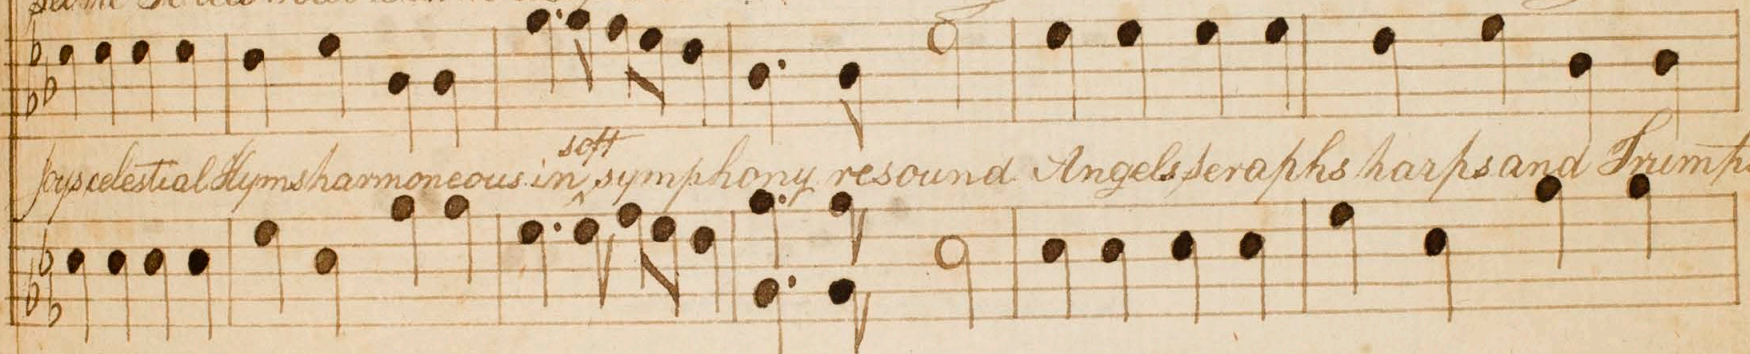 soft
Joys celestial Hyms harmoneous in ^ symphony resound Angels seraphs harps and Trump